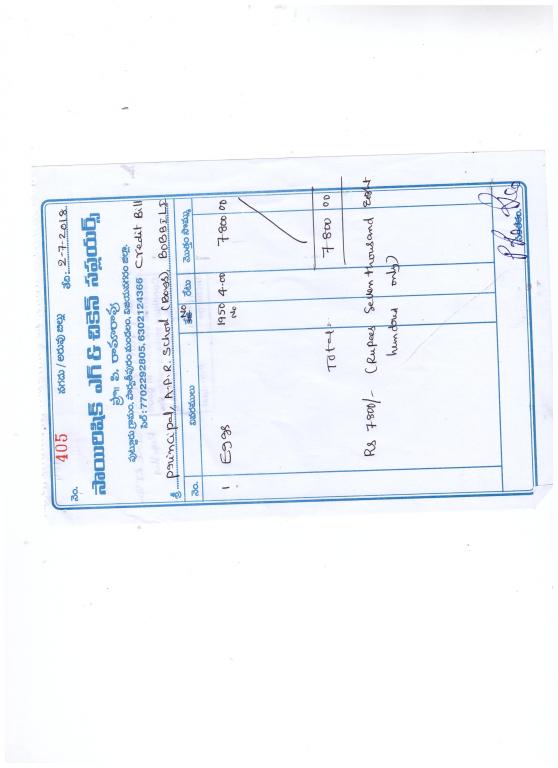 నం. 405 నగదు / అరువు బిల్లు తేది: 2-7-2018
సాయిలిఖిత్ ఎగ్ & చికెన్ సప్లయర్స్
ప్రొ॥ పి. రామారావు
పుట్టూరు గ్రామం, పార్వతీపురం మండలం, విజయనగరం జిల్లా.
సెల్ : 7702292805, 6302124366 Credit Bill
శ్రీ Principal, A.P.R. School (Boys), BOBBILI
నం. వివరములు No రేటు మొత్తం సొమ్ము
1. Eggs 1950 4-00 7800 00
No
Total:- 7800 00
Rs 7800/- (Rupees Seven thousand Eight
hundred only)